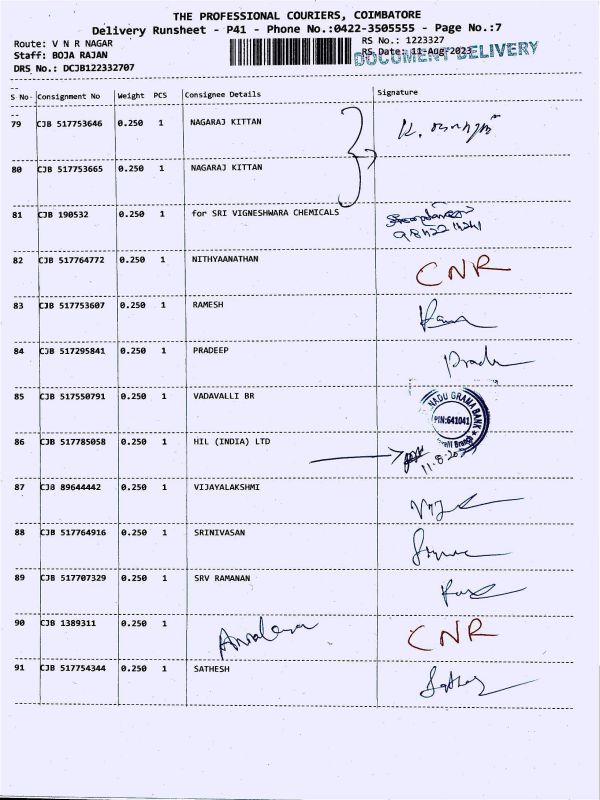 THE PROFESSIONAL COURIERS, COIMBATORE
Delivery Runsheet - P41 - Phone No.:0422-3505555 - Page No.:7
Route: V N R NAGAR
RS No.: 1223327
Staff: BOJA RAJAN
RS Date: 11-Aug-2023
DOCUMENT DELIVERY
DRS No.: DCJB122332707
S No- Consignment No Weight PCS Consignee Details Signature
79 CJB 517753646 0.250 1 NAGARAJ KITTAN
80 CJB 517753665 0.250 1 NAGARAJ KITTAN
81 CJB 190532 0.250 1 for SRI VIGNESHWARA CHEMICALS
82 CJB 517764772 0.250 1 NITHYAANATHAN CNR
83 CJB 517753607 0.250 1 RAMESH
84 CJB 517295841 0.250 1 PRADEEP
85 CJB 517550791 0.250 1 VADAVALLI BR
NADU GRAMA BANK
PIN:641041
Branch
86 CJB 517785058 0.250 1 HIL (INDIA) LTD
87 CJB 89644442 0.250 1 VIJAYALAKSHMI
88 CJB 517764916 0.250 1 SRINIVASAN
89 CJB 517707329 0.250 1 SRV RAMANAN
90 CJB 1389311 0.250 1 CNR
91 CJB 517754344 0.250 1 SATHESH